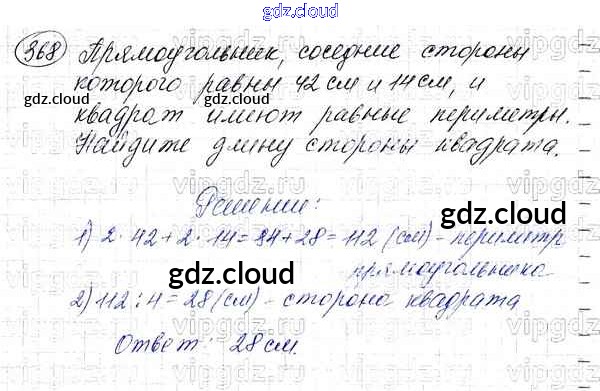 gdz.cloud
368 Прямоугольник, соседние стороны
которого равны 42 см и 14 см, и
gdz.cloud gdz.cloud
квадрат имеют равные периметры.
Найдите длину стороны квадрата.
Решение:
gdz.cloud
1) 2 · 42 + 2 · 14 = 84 + 28 = 112 (см) - периметр
прямоугольника
gdz.cloud
2) 112 : 4 = 28 (см) - сторона квадрата
Ответ: 28 см.
gdz.cloud